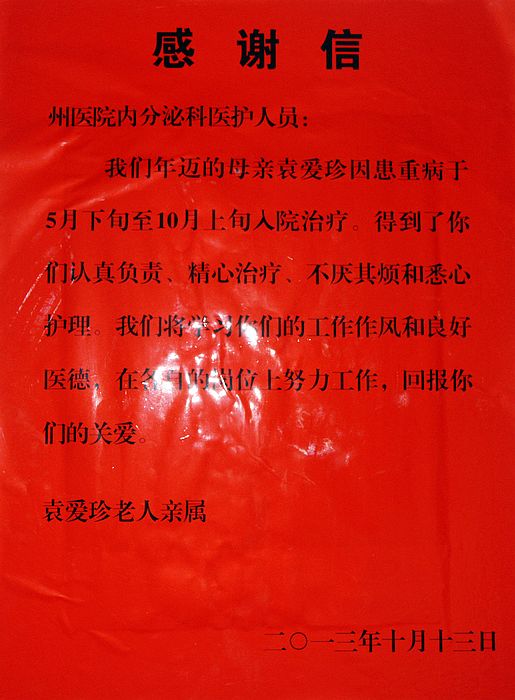 感谢信
州医院内分泌科医护人员：
我们年迈的母亲袁爱珍因患重病于
5月下旬至10月上旬入院治疗。得到了你
们认真负责、精心治疗、不厌其烦和悉心
护理。我们将学习你们的工作作风和良好
医德，在各自的岗位上努力工作，回报你
们的关爱。
袁爱珍老人亲属
二〇一三年十月十三日